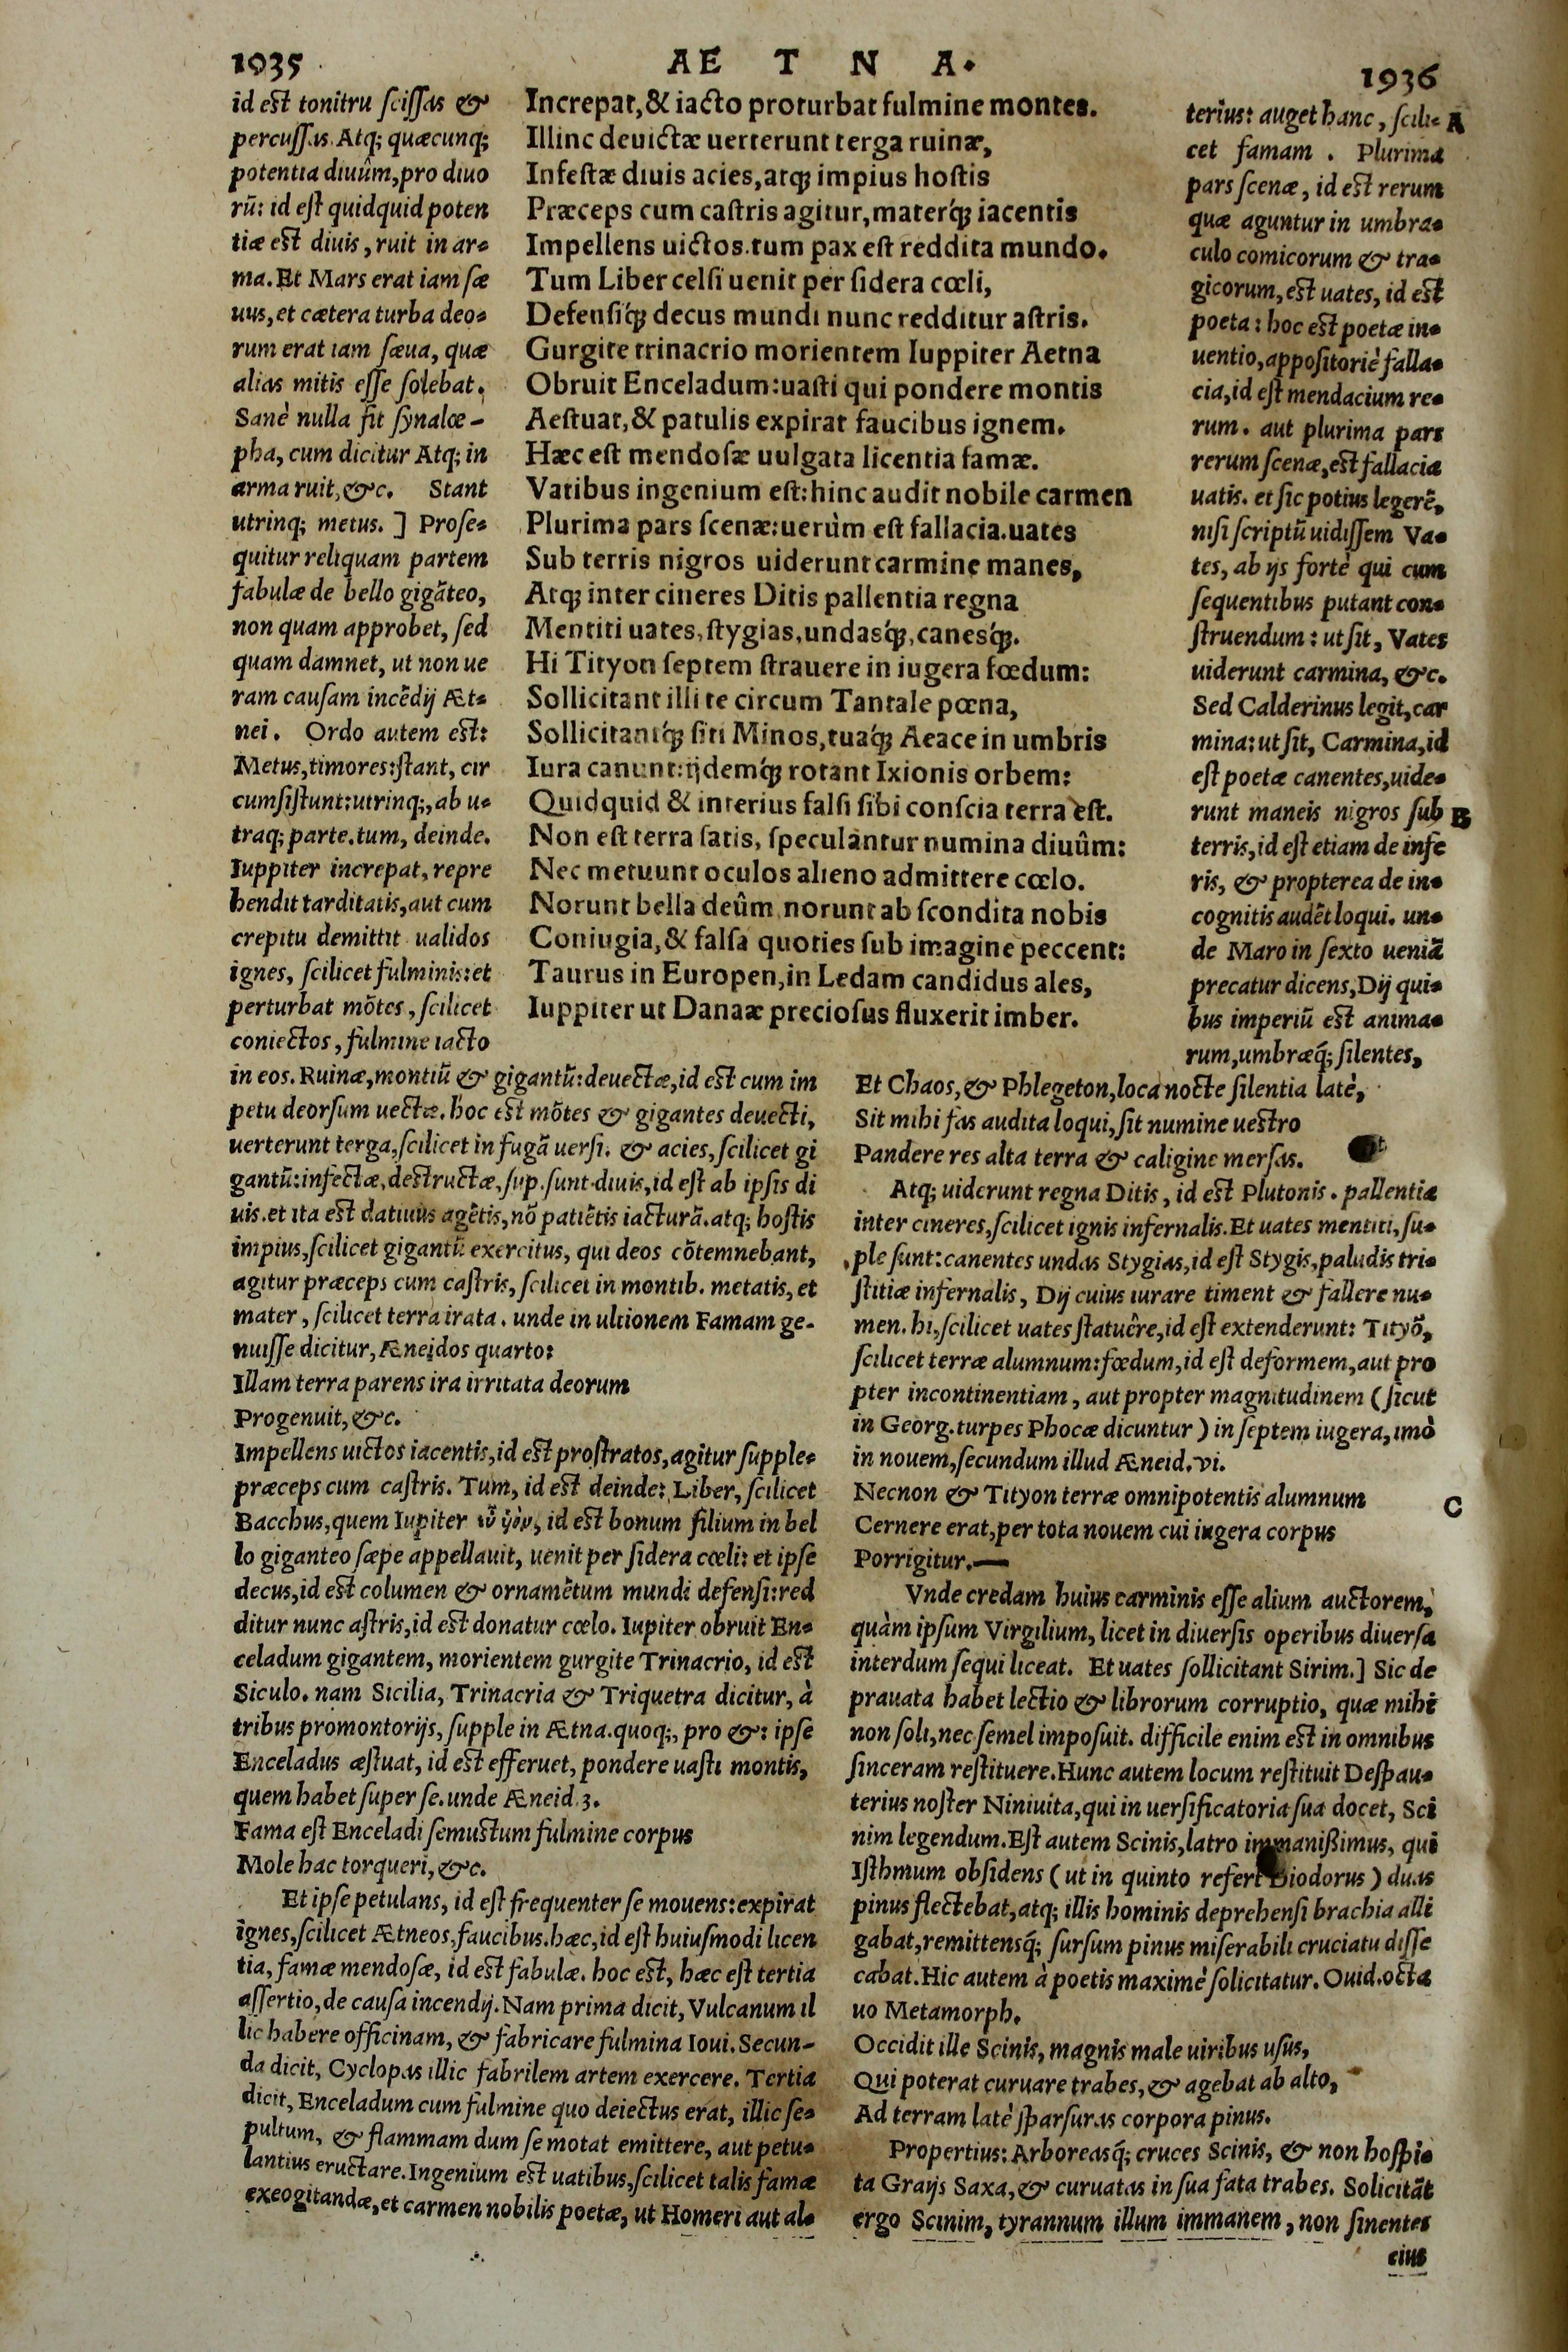 1935
AE T N A.
1936
id est tonitru scissas &
percussas. Atq; quæcunq;
potentia diuûm, pro diuo
rũ: id est quidquid poten
tiæ est diuis, ruit in ar-
ma. Et Mars erat iam sæ
uus, et cætera turba deo-
rum erat iam sæua, quæ
alias mitis esse solebat.
Sanè nulla fit synalœ-
pha, cum dicitur Atq; in
arma ruit, &c. Stant
utrinq; metus. ] Prose-
quitur reliquam partem
fabulæ de bello gigãteo,
non quam approbet, sed
quam damnet, ut non ue
ram causam incẽdij Æt-
nei. Ordo autem est:
Metus, timores: stant, cir
cumsistunt: utrinq;, ab u-
traq; parte. tum, deinde.
Iuppiter increpat, repre
hendit tarditatis, aut cum
crepitu demittit ualidos
ignes, scilicet fulminis: et
perturbat mõtes, scilicet
coniectos, fulmine iacto
Increpat, & iacto proturbat fulmine montes.
Illinc deuictæ uerterunt terga ruinæ,
Infestæ diuis acies, atq; impius hostis
Præceps cum castris agitur, materq́; iacentis
Impellens uictos. tum pax est reddita mundo.
Tum Liber celsi uenit per sidera cœli,
Defensiq́; decus mundi nunc redditur astris.
Gurgite trinacrio morientem Iuppiter Aetna
Obruit Enceladum: uasti qui pondere montis
Aestuat, & patulis expirat faucibus ignem.
Hæc est mendosæ uulgata licentia famæ.
Vatibus ingenium est: hinc audit nobile carmen
Plurima pars scenæ: uerùm est fallacia. uates
Sub terris nigros uiderunt carmine manes,
Atq; inter cineres Ditis pallentia regna
Mentiti uates, stygias, undasq́;, canesq́;.
Hi Tityon septem strauere in iugera fœdum:
Sollicitant illi te circum Tantale pœna,
Sollicitantq́; siti Minos, tuaq́; Aeace in umbris
Iura canunt: ijdemq́; rotant Ixionis orbem:
Quidquid & interius falsi sibi conscia terra est.
Non est terra satis, speculantur numina diuûm:
Nec metuunt oculos alieno admittere cœlo.
Norunt bella deûm norunt ab scondita nobis
Coniugia, & falsa quoties sub imagine peccent:
Taurus in Europen, in Ledam candidus ales,
Iuppiter ut Danaæ preciosus fluxerit imber.
terius: auget hanc, scili- A
cet famam. Plurima
pars scenæ, id est rerum
quæ aguntur in umbra-
culo comicorum & tra-
gicorum, est uates, id est
poeta: hoc est poetæ in-
uentio, appositoriè falla-
cia, id est mendacium re-
rum. aut plurima pars
rerum scenæ, est fallacia
uatis. et sic potius legerẽ,
nisi scriptũ uidissem Va-
tes, ab ijs fortè qui cum
sequentibus putant con-
struendum: ut sit, Vates
uiderunt carmina, &c.
Sed Calderinus legit, car
mina: ut sit, Carmina, id
est poetæ canentes, uide-
runt maneis nigros sub B
terris, id est etiam de infe
ris, & propterea de in-
cognitis audẽt loqui. un-
de Maro in sexto ueniã
precatur dicens, Dij qui-
bus imperiũ est anima-
rum, umbræq́; silentes,
in eos. Ruinæ, montiũ & gigantũ: deuectæ, id est cum im
petu deorsum uectæ. hoc est mõtes & gigantes deuecti,
uerterunt terga, scilicet in fugã uersi. & acies, scilicet gi
gantũ: infectæ, destructæ, sup. sunt diuis, id est ab ipsis di
uis. et ita est datiuus agẽtis, nõ patiẽtis iacturã. atq; hostis
impius, scilicet gigantũ exercitus, qui deos cõtemnebant,
agitur præceps cum castris, scilicet in montib. metatis, et
mater, scilicet terra irata. unde in ultionem Famam ge-
nuisse dicitur, Æneidos quarto:
Illam terra parens ira irritata deorum
Progenuit, &c.
Impellens uictos iacentis, id est prostratos, agitur supple-
præceps cum castris. Tum, id est deinde: Liber, scilicet
Bacchus, quem Iupiter id est bonum filium in bel
lo giganteo sæpe appellauit, uenit per sidera cœli: et ipse
decus, id est columen & ornamẽtum mundi defensi: red
ditur nunc astris, id est donatur cœlo. Iupiter obruit En-
celadum gigantem, morientem gurgite Trinacrio, id est
Siculo. nam Sicilia, Trinacria & Triquetra dicitur, à
tribus promontorijs, supple in Ætna. quoq;, pro &: ipse
Enceladus æstuat, id est efferuet, pondere uasti montis,
quem habet super se. unde Æneid. 3.
Fama est Enceladi semustum fulmine corpus
Mole hac torqueri, &c.
Et ipse petulans, id est frequenter se mouens: expirat
ignes, scilicet Ætneos, faucibus. hæc, id est huiusmodi licen
tia, famæ mendosæ, id est fabulæ. hoc est, hæc est tertia
assertio, de causa incendij. Nam prima dicit, Vulcanum il
lic habere officinam, & fabricare fulmina Ioui. Secun-
da dicit, Cyclopas illic fabrilem artem exercere. Tertia
dicit, Enceladum cum fulmine quo deiectus erat, illic se-
pultum, & flammam dum se motat emittere, aut petu-
lantius eructare. Ingenium est uatibus, scilicet talis famæ
exeogitandæ, et carmen nobilis poetæ, ut Homeri aut al-
Et Chaos, & Phlegeton, loca nocte silentia latè,
Sit mihi fas audita loqui, sit numine uestro
Pandere res alta terra & caligine mersas.
Atq; uiderunt regna Ditis, id est Plutonis. pallentia
inter cineres, scilicet ignis infernalis. Et uates mentiti, su-
ple sunt: canentes undas Stygias, id est Stygis, paludis tri-
stitiæ infernalis, Dij cuius iurare timent & fallere nu-
men. hi, scilicet uates statuêre, id est extenderunt: Tityõ,
scilicet terræ alumnum: fœdum, id est deformem, aut pro
pter incontinentiam, aut propter magnitudinem (sicut
in Georg. turpes Phocæ dicuntur) in septem iugera, imò
in nouem, secundum illud Æneid. vi.
Necnon & Tityon terræ omnipotentis alumnum C
Cernere erat, per tota nouem cui iugera corpus
Porrigitur.—
Vnde credam huius carminis esse alium auctorem,
quàm ipsum Virgilium, licet in diuersis operibus diuersa
interdum sequi liceat. Et uates sollicitant Sirim.] Sic de
prauata habet lectio & librorum corruptio, quæ mihi
non soli, nec semel imposuit. difficile enim est in omnibus
sinceram restituere. Hunc autem locum restituit Despau-
terius noster Niniuita, qui in uersificatoria sua docet, Sci
nim legendum. Est autem Scinis, latro immanißimus, qui
Isthmum obsidens (ut in quinto refert Diodorus) duas
pinus flectebat, atq; illis hominis deprehensi brachia alli
gabat, remittensq́; sursum pinus miserabili cruciatu disse
cabat. Hic autem à poetis maximè solicitatur. Ouid. octa
uo Metamorph.
Occidit ille Scinis, magnis male uiribus usus,
Qui poterat curuare trabes, & agebat ab alto,
Ad terram latè sparsuras corpora pinus.
Propertius: Arboreasq́; cruces Scinis, & non hospi-
ta Graijs Saxa, & curuatas in sua fata trabes. Solicitãt
ergo Scinim, tyrannum illum immanem, non sinentes
eius